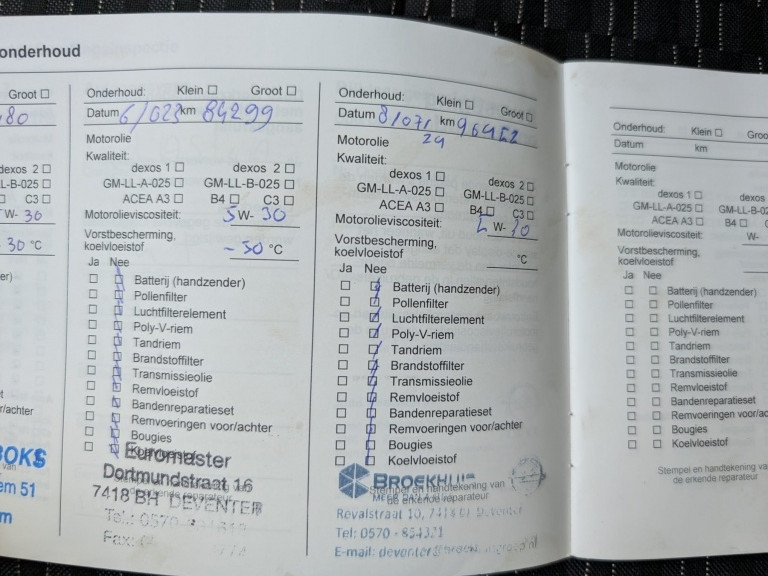 onderhoud
Groot
80
dexos 2
L-B-025
C3
W- 30
30 °C
er)
r/achter
BOKS
van
em 51
m
Onderhoud: Klein Groot
Datum 6/ km 84299
Motorolie
Kwaliteit:
dexos 1 dexos 2
GM-LL-A-025 GM-LL-B-025
ACEA A3 B4 C3
Motorolieviscositeit: 5 W- 30
Vorstbescherming,
koelvloeistof - 30 °C
Ja Nee
Batterij (handzender)
Pollenfilter
Luchtfilterelement
Poly-V-riem
Tandriem
Brandstoffilter
Transmissieolie
Remvloeistof
Bandenreparatieset
Remvoeringen voor/achter
Bougies
Euromaster
Dortmundstraat 16
7418 BH DEVENTER
Tel.: 0570
Fax:
Onderhoud: Klein Groot
Datum 8/07/ km
24
Motorolie
Kwaliteit:
dexos 1 dexos 2
GM-LL-A-025 GM-LL-B-025
ACEA A3 B4 C3
Motorolieviscositeit: W-
Vorstbescherming,
koelvloeistof °C
Ja Nee
Batterij (handzender)
Pollenfilter
Luchtfilterelement
Poly-V-riem
Tandriem
Brandstoffilter
Transmissieolie
Remvloeistof
Bandenreparatieset
Remvoeringen voor/achter
Bougies
Koelvloeistof
BROEKHUIS
Stempel en handtekening van
de erkende reparateur
Revalstraat 10, Deventer
Tel: 0570 -
E-mail:
Onderhoud: Klein Groo
Datum km
Motorolie
Kwaliteit:
dexos 1 dexos 2
GM-LL-A-025 GM-LL-B-02
ACEA A3 B4 C
Motorolieviscositeit: W-
Vorstbescherming,
koelvloeistof
Ja Nee
Batterij (handzender)
Pollenfilter
Luchtfilterelement
Poly-V-riem
Tandriem
Brandstoffilter
Transmissieolie
Remvloeistof
Bandenreparatieset
Remvoeringen voor/ac
Bougies
Koelvloeistof
Stempel en handtekening va
de erkende reparateur